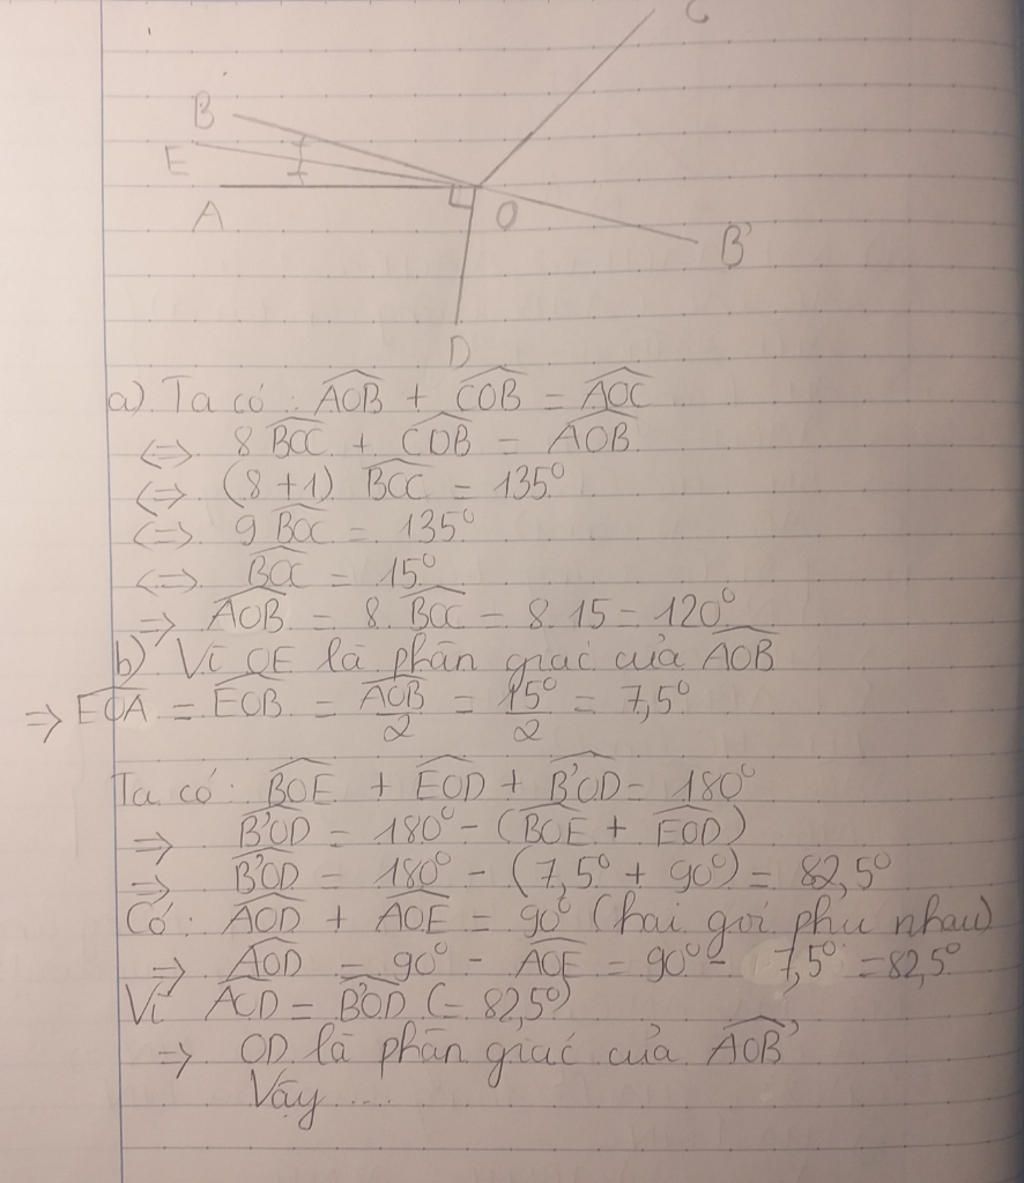 C
B
E
A
O
B'
D
a) Ta có: AOB + COB = AOC
<=> 8 BOC + COB = AOB
<=> (8+1) BOC = 135°
<=> 9 BOC = 135°
<=> BOC = 15°
=> AOB = 8. BOC = 8.15 = 120°
b) Vì OE là phân giác của AOB
=> EOA = EOB = AOB/2 = 15°/2 = 7,5°
Ta có: BOE + EOD + B'OD = 180°
=> B'OD = 180° - (BOE + EOD)
=> B'OD = 180° - (7,5° + 90°) = 82,5°
Có: AOD + AOE = 90° (hai goi phu nhau)
=> AOD = 90° - AOE = 90° - 7,5° = 82,5°
Vì AOD = B'OD (= 82,5°)
=> OD là phân giác của AOB'
Vậy ....